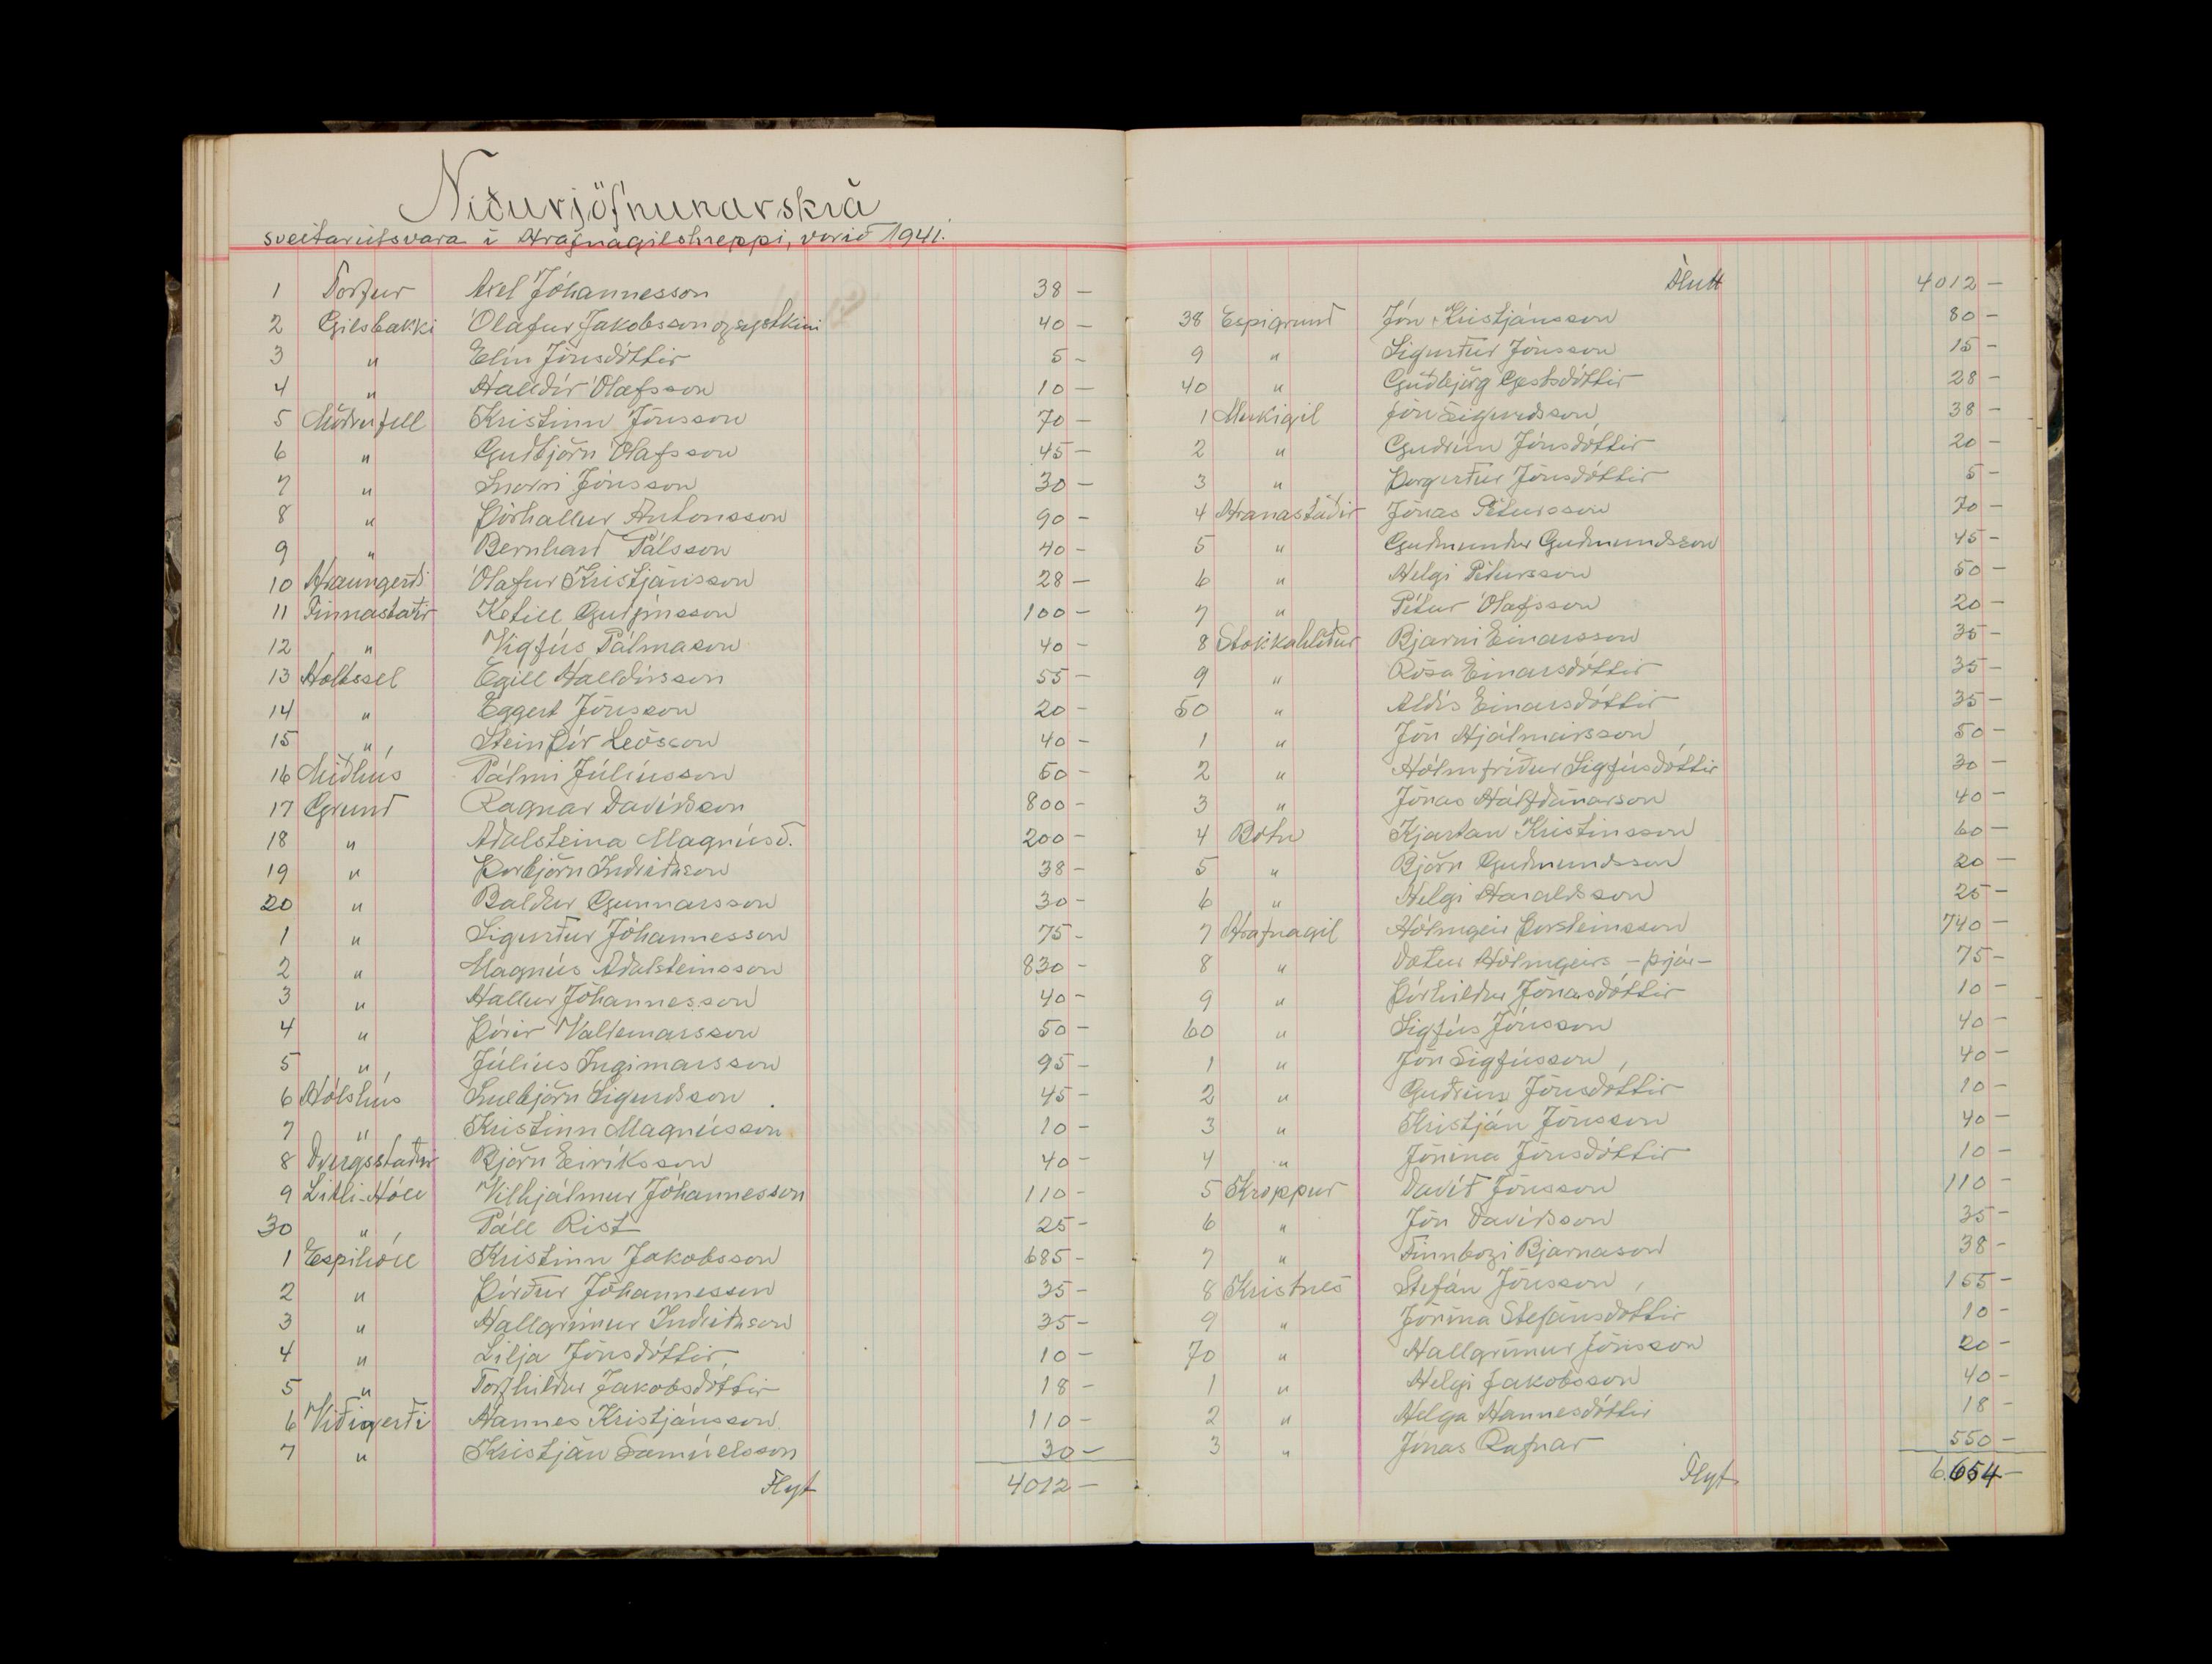 Niðurjöfnunarskrá
sveitarútsvara í Hrafnagilshreppi, vorið 1941.
1 Torfur Axel Jóhannesson 38 -
2 Gilsbakki Ólafur Jakobsson og systkini 40 -
3 " Elín Jónsdóttir 5 -
4 " Halldór Ólafsson 10 -
5 Möðrufell Kristinn Jónsson 70 -
6 " Guðbjörn Ólafsson 45 -
7 " Snorri Jónsson 30 -
8 " Þórhallur Antonsson 90 -
9 " Bernharð Pálsson 40 -
10 Hraungerði Ólafur Kristjánsson 28 -
11 Finnastaðir Ketill Guðjónsson 100 -
12 " Vigfús Pálmason 40 -
13 Holtssel Egill Halldórsson 55 -
14 " Eggert Jónsson 20 -
15 " Steinþór Leósson 40 -
16 Miðhús Pálmi Júlíusson 60 -
17 Grund Ragnar Davíðsson 800 -
18 " Aðalsteina Magnúsd. 200 -
19 " Þorbjörn Indriðason 38 -
20 " Baldur Gunnarsson 30 -
1 " Sigurður Jóhannesson 75 -
2 " Magnús Aðalsteinsson 830 -
3 " Hallur Jóhannesson 40 -
4 " Þórir Valdemarsson 50 -
5 " Júlíus Ingimarsson 95 -
6 Hólshús Snæbjörn Sigurðsson 45 -
7 " Kristinn Magnússon 10 -
8 Dvergsstaðir Björn Eiríksson 40 -
9 Litli-Hóll Vilhjálmur Jóhannesson 110 -
30 " Páll Rist 25 -
1 Espihóll Kristinn Jakobsson 685 -
2 " Þórður Jóhannesson 35 -
3 " Hallgrímur Indriðason 35 -
4 " Lilja Jónsdóttir 10 -
5 " Torfhildur Jakobsdóttir 18 -
6 Víðigerði Hannes Kristjánsson 110 -
7 " Kristján Samúelsson 30 -
Flyt 4012 -
Flutt 4012 -
38 Espigrund Jón Kristjánsson 80 -
9 " Sigurður Jónsson 15 -
40 " Guðbjörg Gestsdóttir 28 -
1 Merkigil Jón Sigurðsson 38 -
2 " Guðrún Jónsdóttir 20 -
3 " Þorgerður Jónsdóttir 5 -
4 Hranastaðir Jónas Pétursson 70 -
5 " Guðmundur Guðmundsson 45 -
6 " Helgi Pétursson 50 -
7 " Pétur Ólafsson 20 -
8 Stokkahlaðir Bjarni Einarsson 35 -
9 " Rósa Einarsdóttir 35 -
50 " Aldís Einarsdóttir 35 -
1 " Jón Hjálmarsson 50 -
2 " Hólmfríður Sigfúsdóttir 30 -
3 " Jónas Hálfdánarson 40 -
4 Botn Kjartan Kristinsson 60 -
5 " Björn Guðmundsson 20 -
6 " Helgi Haraldsson 25 -
7 Hrafnagil Hólmgeir Þorsteinsson 740 -
8 " Dætur Hólmgeirs - þrjár - 75 -
9 " Þórhildur Jónasdóttir 10 -
60 " Sigfús Jónsson 40 -
1 " Jón Sigfússon 40 -
2 " Guðrún Jónsdóttir 10 -
3 " Kristján Jónsson 40 -
4 " Jónína Jónsdóttir 10 -
5 Kroppur Davíð Jónsson 110 -
6 " Jón Davíðsson 35 -
7 " Finnbogi Bjarnason 38 -
8 Kristnes Stefán Jónsson 155 -
9 " Jónína Stefánsdóttir 10 -
70 " Hallgrímur Jónsson 20 -
1 " Helgi Jakobsson 40 -
2 " Helga Hannesdóttir 18 -
3 " Jónas Rafnar 550 -
Flyt 6.654 -